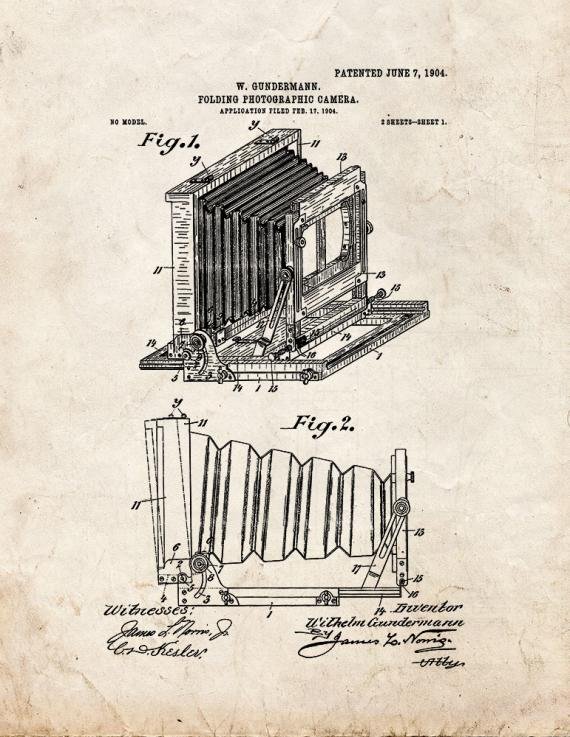 PATENTED JUNE 7, 1904.
W. GUNDERMANN.
FOLDING PHOTOGRAPHIC CAMERA.
APPLICATION FILED FEB. 17, 1904.
NO MODEL.
2 SHEETS—SHEET 1.
Fig.1.
y
11
y
13
11
13
15
14
6
17
16
14
1
5
14
1
15
Fig.2.
y
11
11
13
6
2
17
15
4
3
16
14
1
Witnesses:
Inventor
Wilhelm Gundermann
James L. Norris, Jr.
By
James L. Norris.
Atty.